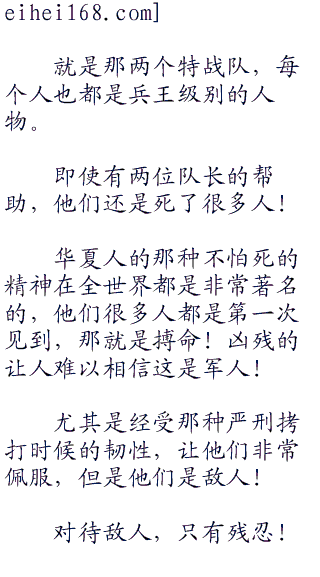 eihei168.com]
就是那两个特战队，每
个人也都是兵王级别的人
物。
即使有两位队长的帮
助，他们还是死了很多人！
华夏人的那种不怕死的
精神在全世界都是非常著名
的，他们很多人都是第一次
见到，那就是搏命！凶残的
让人难以相信这是军人！
尤其是经受那种严刑拷
打时候的韧性，让他们非常
佩服，但是他们是敌人！
对待敌人，只有残忍！